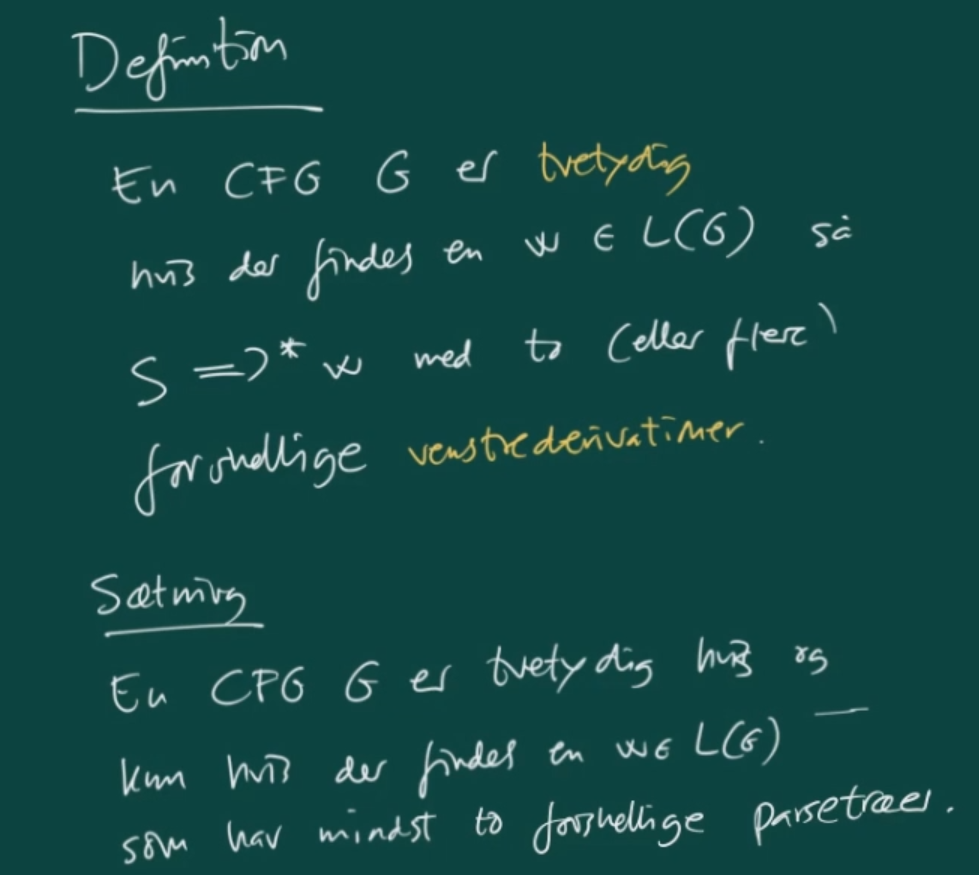 Definition
En CFG G er tvetydig
hvis der findes en w ∈ L(G) så
S =>* w med to (eller flere)
forskellige venstrederivationer.
Sætning
En CFG G er tvetydig hvis og
kun hvis der findes en w ∈ L(G)
som har mindst to forskellige parsetræer.